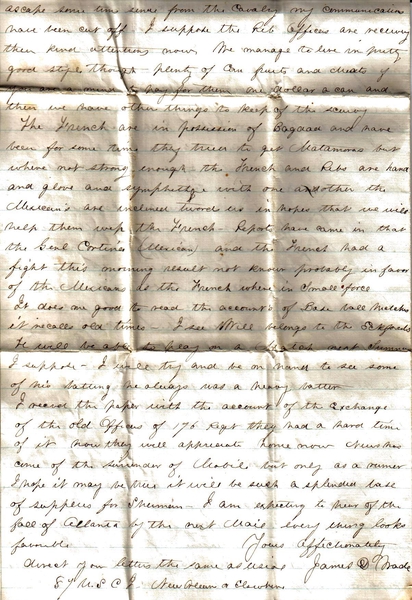 ascape some one sends from the Cavalry my communication
have been cut off. I suppose the Reb officers are receiving
their kind attentions now. We manage to live in pretty
good style though plenty of Can fruits and
pay for them one dollar a can and
then we have other things to keep of the scurvy
The French are in possession of Bagdad and have
been for some time they tried to get Matamoras but
where not strong enough the French and Rebs are hand
and glove and symphathyse with one another the
Mexican's are inclined tword us in hopes that we will
help them wip the French. Report have came in that
the Genl Cortinas (Mexican) and the French had a
fight this morning result not known probably in favor
of the Mexicans as the French where in small force
It does me good to read the accounts of Base ball Matches
it recalls old times - I see Will belongs to the
He will be able to play on a next summer
I suppose - I will try and be on hand to see some
of his batting he always was a heavy batter
I recied the paper with the account of the Exchange
of the old Officers of 176 Regt they had a hard time
of it now they will appreciate home now News has
come of the surender of Mobile but only as a rumor
I hope it may be true it will be such a splendid base
of supplies for Sherman - I am expecting to hear of the
fall of Atlanta by the next Mail every thing looks
favorable
Yours affectionately
direct your letters the same as usual James D
87 U.S.C.I. New Orleans or Elsewhere